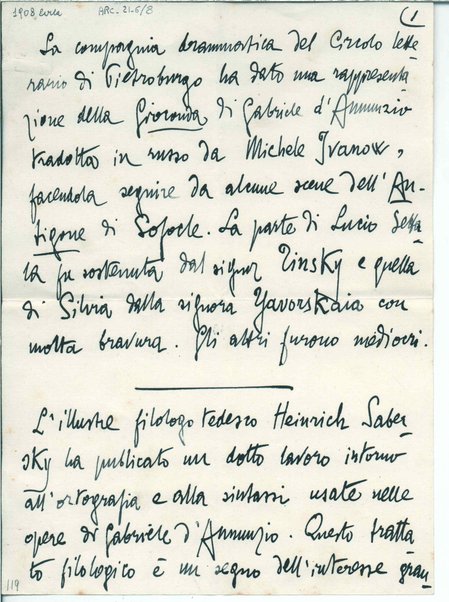 1908 circa
ARC. 21.6/8
(1
La compagnia drammatica del Circolo lette
rario di Pietroburgo ha dato una rappresenta
zione della Gioconda di Gabriele d'Annunzio
tradotta in russo da Michele Ivanow,
facendola seguire da alcune scene dell'An-
tigone di Sofocle. La parte di Lucio Setta-
la fu sostenuta dal signor Tinsky e quella
di Silvia dalla signora Yavorskaia con
molta bravura. Gli altri furono mediocri.
L'illustre filologo tedesco Heinrich Saber-
sky ha publicato un dotto lavoro intorno
all'ortografia e alla sintassi usate nelle
opere di Gabriele d'Annunzio. Questo tratta
to filologico è un segno dell'interesse gran
119